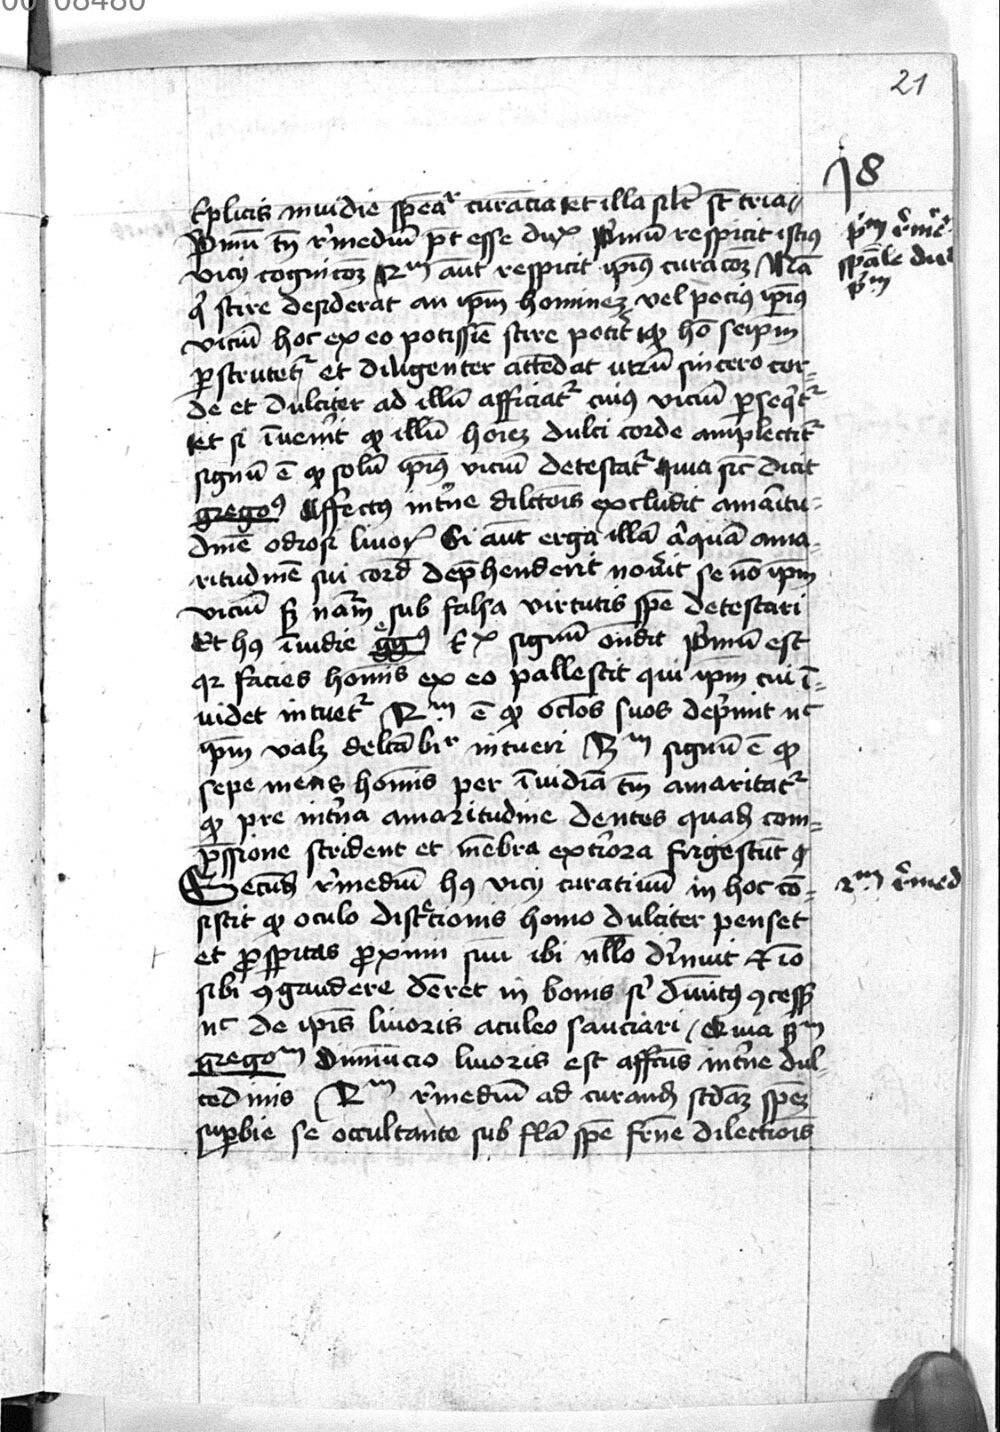 00108480
21
18
Eplicis inuidie speãr curacia et illa silr st tria /
Pmũ tñ rmediũ pt esse dux Pmũ respicit istiꝰ
vicij cognicõꝫ 2m aũt respicit ipiꝰ curacõꝫ Nã
q scire desiderat an ipm hominez vel pociꝰ ipiꝰ
viciũ hoc ex eo potissiẽ scire potit ꝙ hõ seipm
pscrutet et diligenter attẽdat utrũ sincero cor=
de et dulciter ad illũ afficiat cuiꝰ viciũ pseqt
et si ĩueñit ꝙ illũ hoiez dulci corde amplectit
signũ ẽ ꝙ solũ ipiꝰ viciũ detestat quia sic dicit
gregoꝰ Affectꝰ intne dilctõis excludit amaitu=
dinẽ odiosi liuoꝝ Si aũt erga illũ aquã ama=
ritudinẽ sui cord dephenderit nouit se nõ ipm
viciũ sꝫ nãm sub falsa virtutis spe detestari
Et hꝰ ĩuidie ggꝰ Ex signũ ondit Pmũ est
qz facies homis ex eo pallescit qui ipm cui ĩ=
uidet intuet 2m ẽ ꝙ oclos suos depmit nc
ipm valz delcãbir intueri 3m signũ ẽ ꝙ
sepe mens homis per ĩuidiã tm amaritat
ꝙ pre intna amaritudine dentes quasi com=
pssione strident et mẽbra exteriora frigescũt
Secũd rmediũ hꝰ vicij curatiuũ in hoc cõ=
sistit ꝙ oculo discrecionis homo dulciter penset
et ꝓspitas ꝓximi sui ibi nllo diuit et iõ
sibi ꝯgaudere deret in bonis si diuitꝰ ꝯcess
nc de ipis liuoris aculeo sauciari / Quia scdm
gregom Diminucio liuoris est affcus intne dul=
cedinis 3m rmediũ ad curand scdaz spez
supbie se occultante sub flã spe frne dilectiois
pm rmẽ
spãle dul
pm
2m rmed